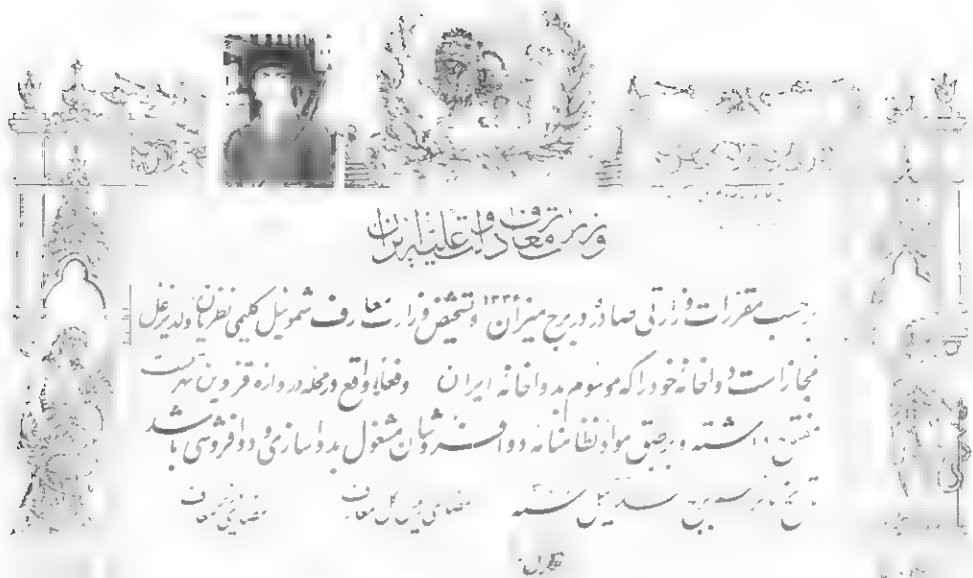 وزارت معارف دولت علیه ایران
برحسب مقررات وزارتی صادره در برج میزان ۱۳۳۶ و تشخیص وزارت معارف شموئیل کلیمی نظریان ولد یزغل
مجاز است دواخانه خود را که موسوم بدواخانه ایران و فعلا واقع در محله دروازه قزوین تهرانست
مفتوح داشته و برطبق مواد نظامنامه دوافروشان مشغول بدواسازی و دوافروشی باشد
بتاریخ برج سنه امضای رئیس کل معارف امضای وزیر معارف